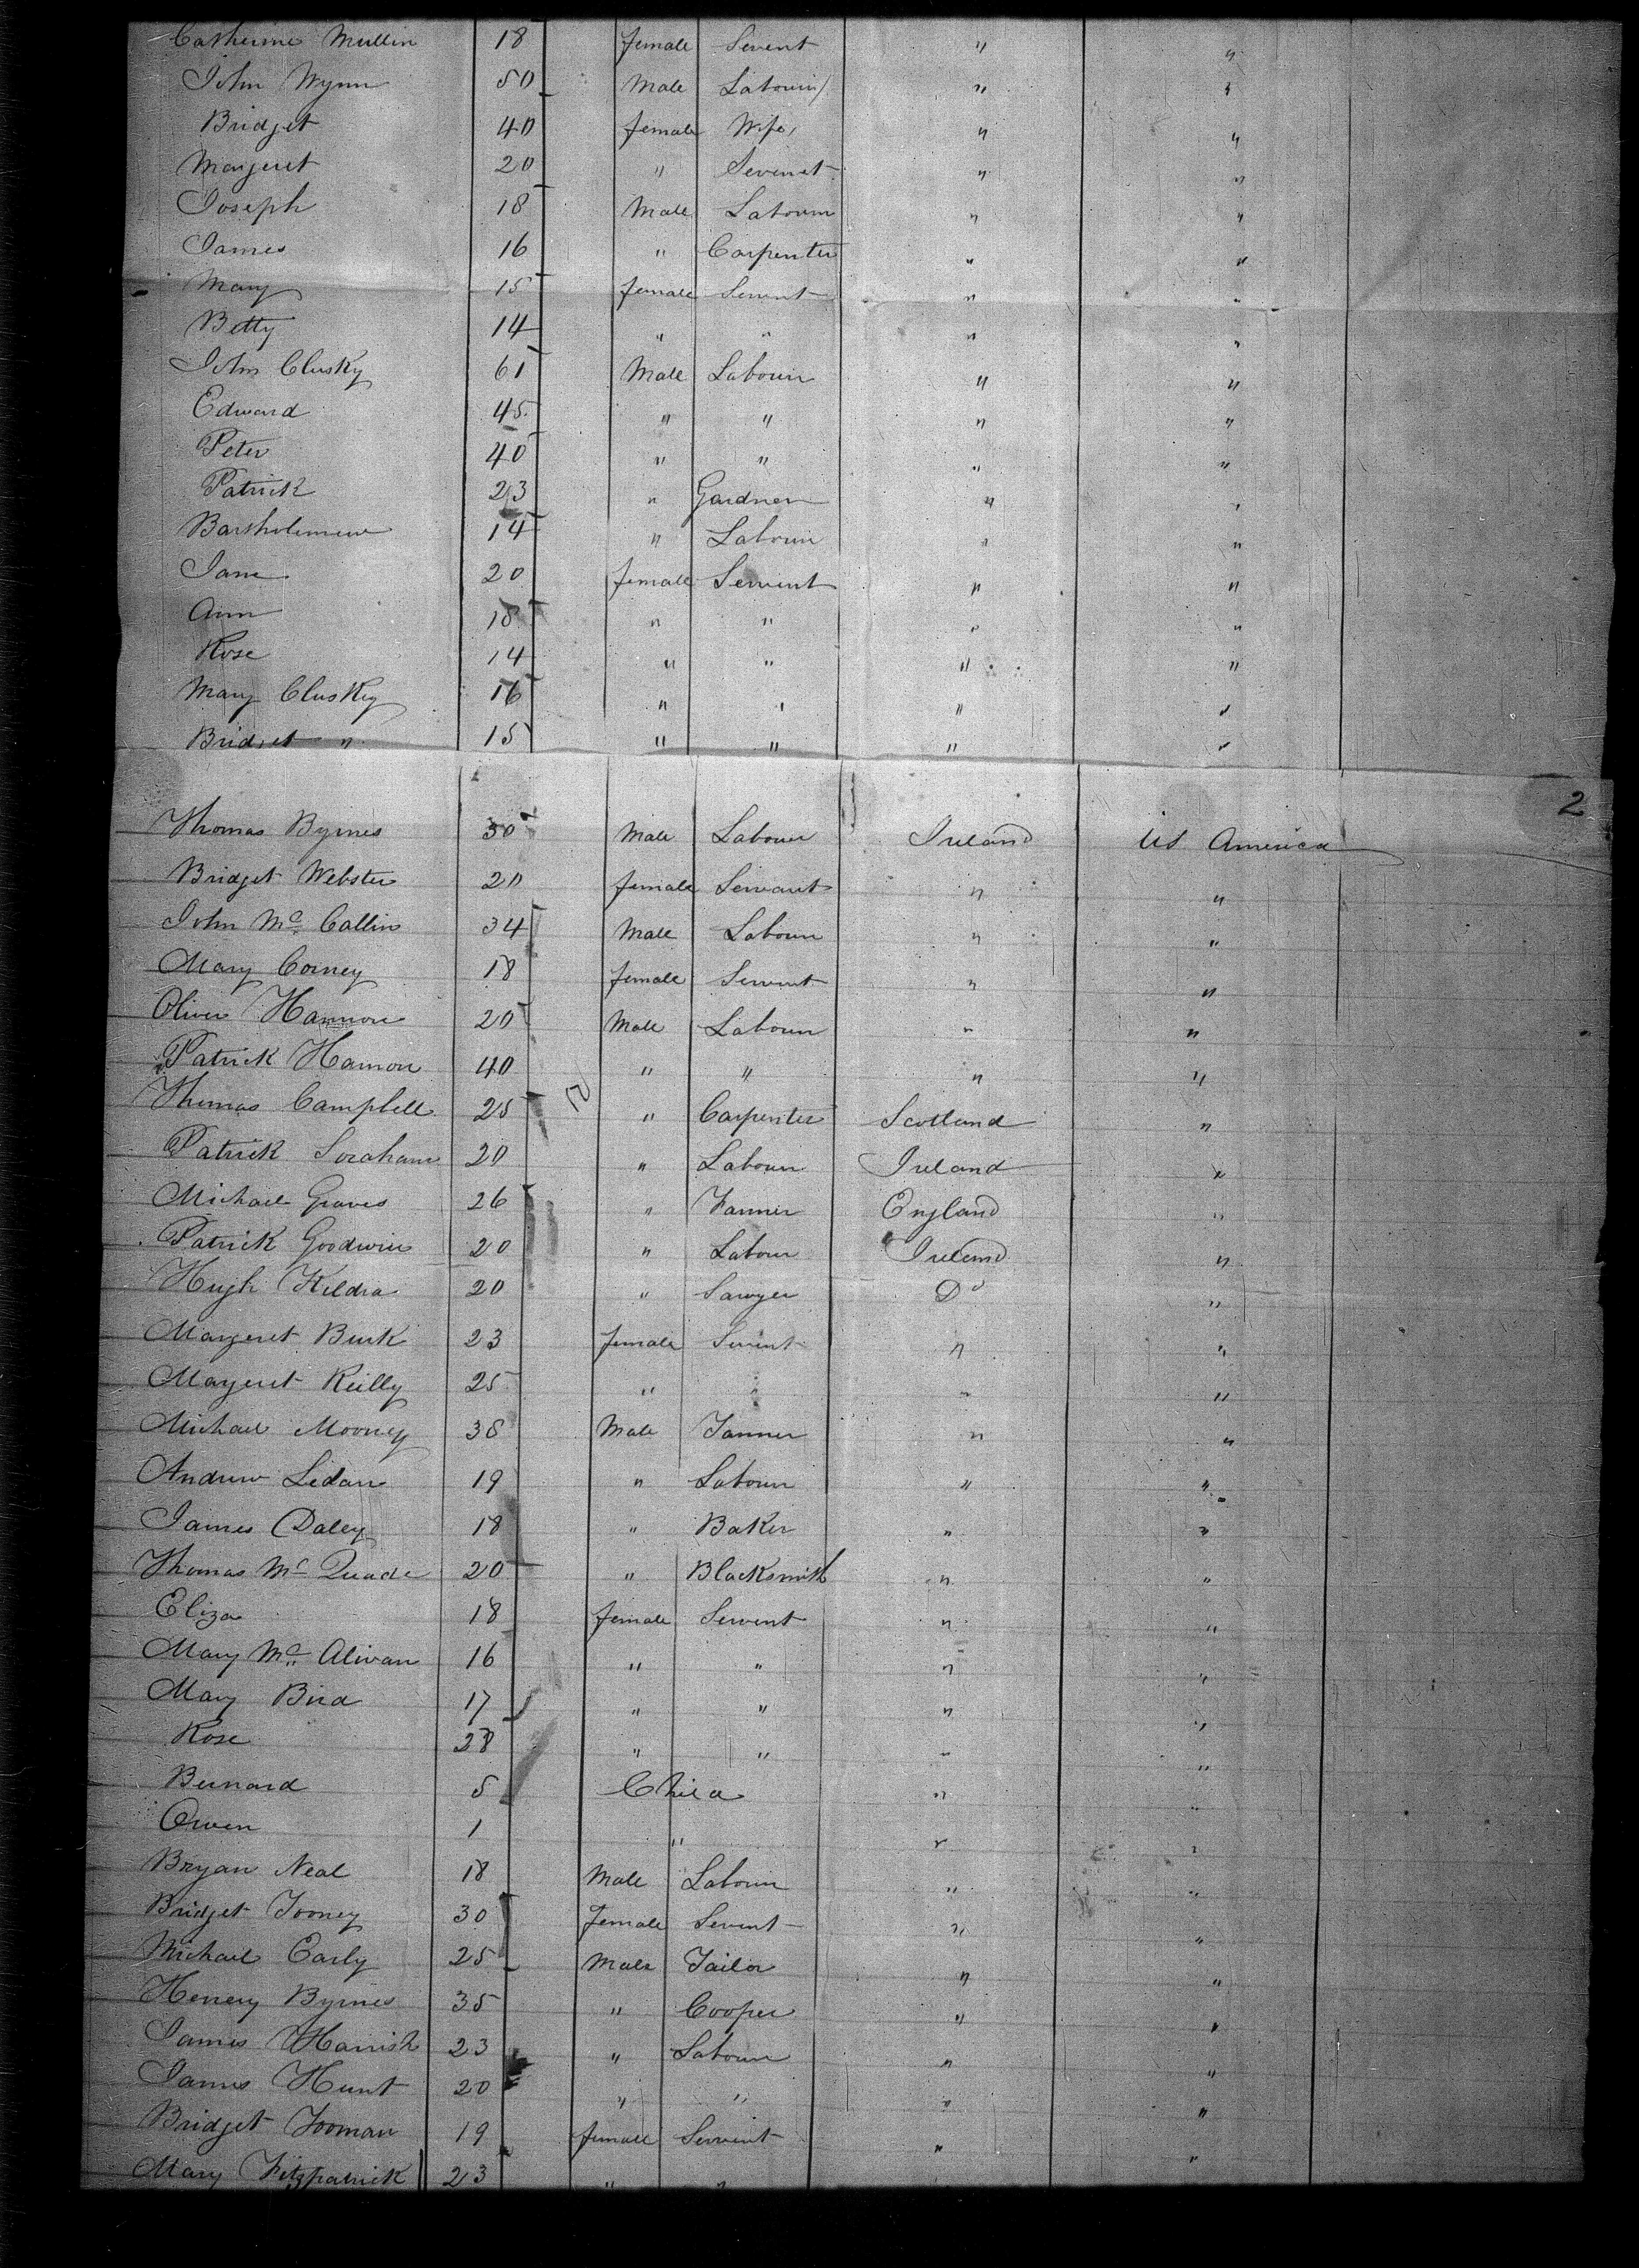 Catherine Mullin 18 female Servent " "
John Wynn 50 Male Labourer " "
Bridget 40 female Wife " "
Margeret 20 " Servent " "
Joseph 18 Male Labourer " "
James 16 " Carpenter " "
Mary 15 female Servent " "
Betty 14 " " " "
John Clusky 61 Male Labourer " "
Edward 45 " " " "
Peter 40 " " " "
Patrick 23 " Gardner " "
Bartholemew 14 " Labourer " "
Jane 20 female Servent " "
Ann 18 " " " "
Rose 14 " " " "
Mary Cluskey 16 " " " "
Bridget " 15 " " " "
2
Thomas Byrnes 30 Male Labourer Ireland US America
Bridget Webster 20 female Servant " "
John Mc Callin 34 Male Labourer " "
Mary Corney 18 female Servent " "
Oliver Hannon 20 Male Labourer " "
Patrick Hamon 40 " " " "
Thomas Campbell 25 " Carpenter Scotland "
Patrick Sorahan 20 " Labourer Ireland "
Michael Graves 26 " Farmer England "
Patrick Goodwin 20 " Labour Ireland "
Hugh Kildra 20 " Sawyer Do "
Margeret Burk 23 female Servent " "
Margeret Reilly 25 " " " "
Michael Mooney 38 Male Farmer " "
Andrew Ledan 19 " Labourer " "
James Daley 18 " Baker " "
Thomas Mc Quade 20 " Blacksmith " "
Eliza 18 female Servent " "
Mary Mc Alivan 16 " " " "
Mary Bird 17 " " " "
Rose 28 " " " "
Bernard 5 Child " "
Owen 1 " " "
Bryan Neal 18 Male Labourer " "
Bridget Tooney 30 female Servent " "
Michael Early 25 Male Tailor " "
Henery Byrnes 35 " Cooper " "
James Harrish 23 " Labourer " "
James Hunt 20 " " " "
Bridget Tooman 19 female Servent " "
Mary Fitzpatrick 23 " " "